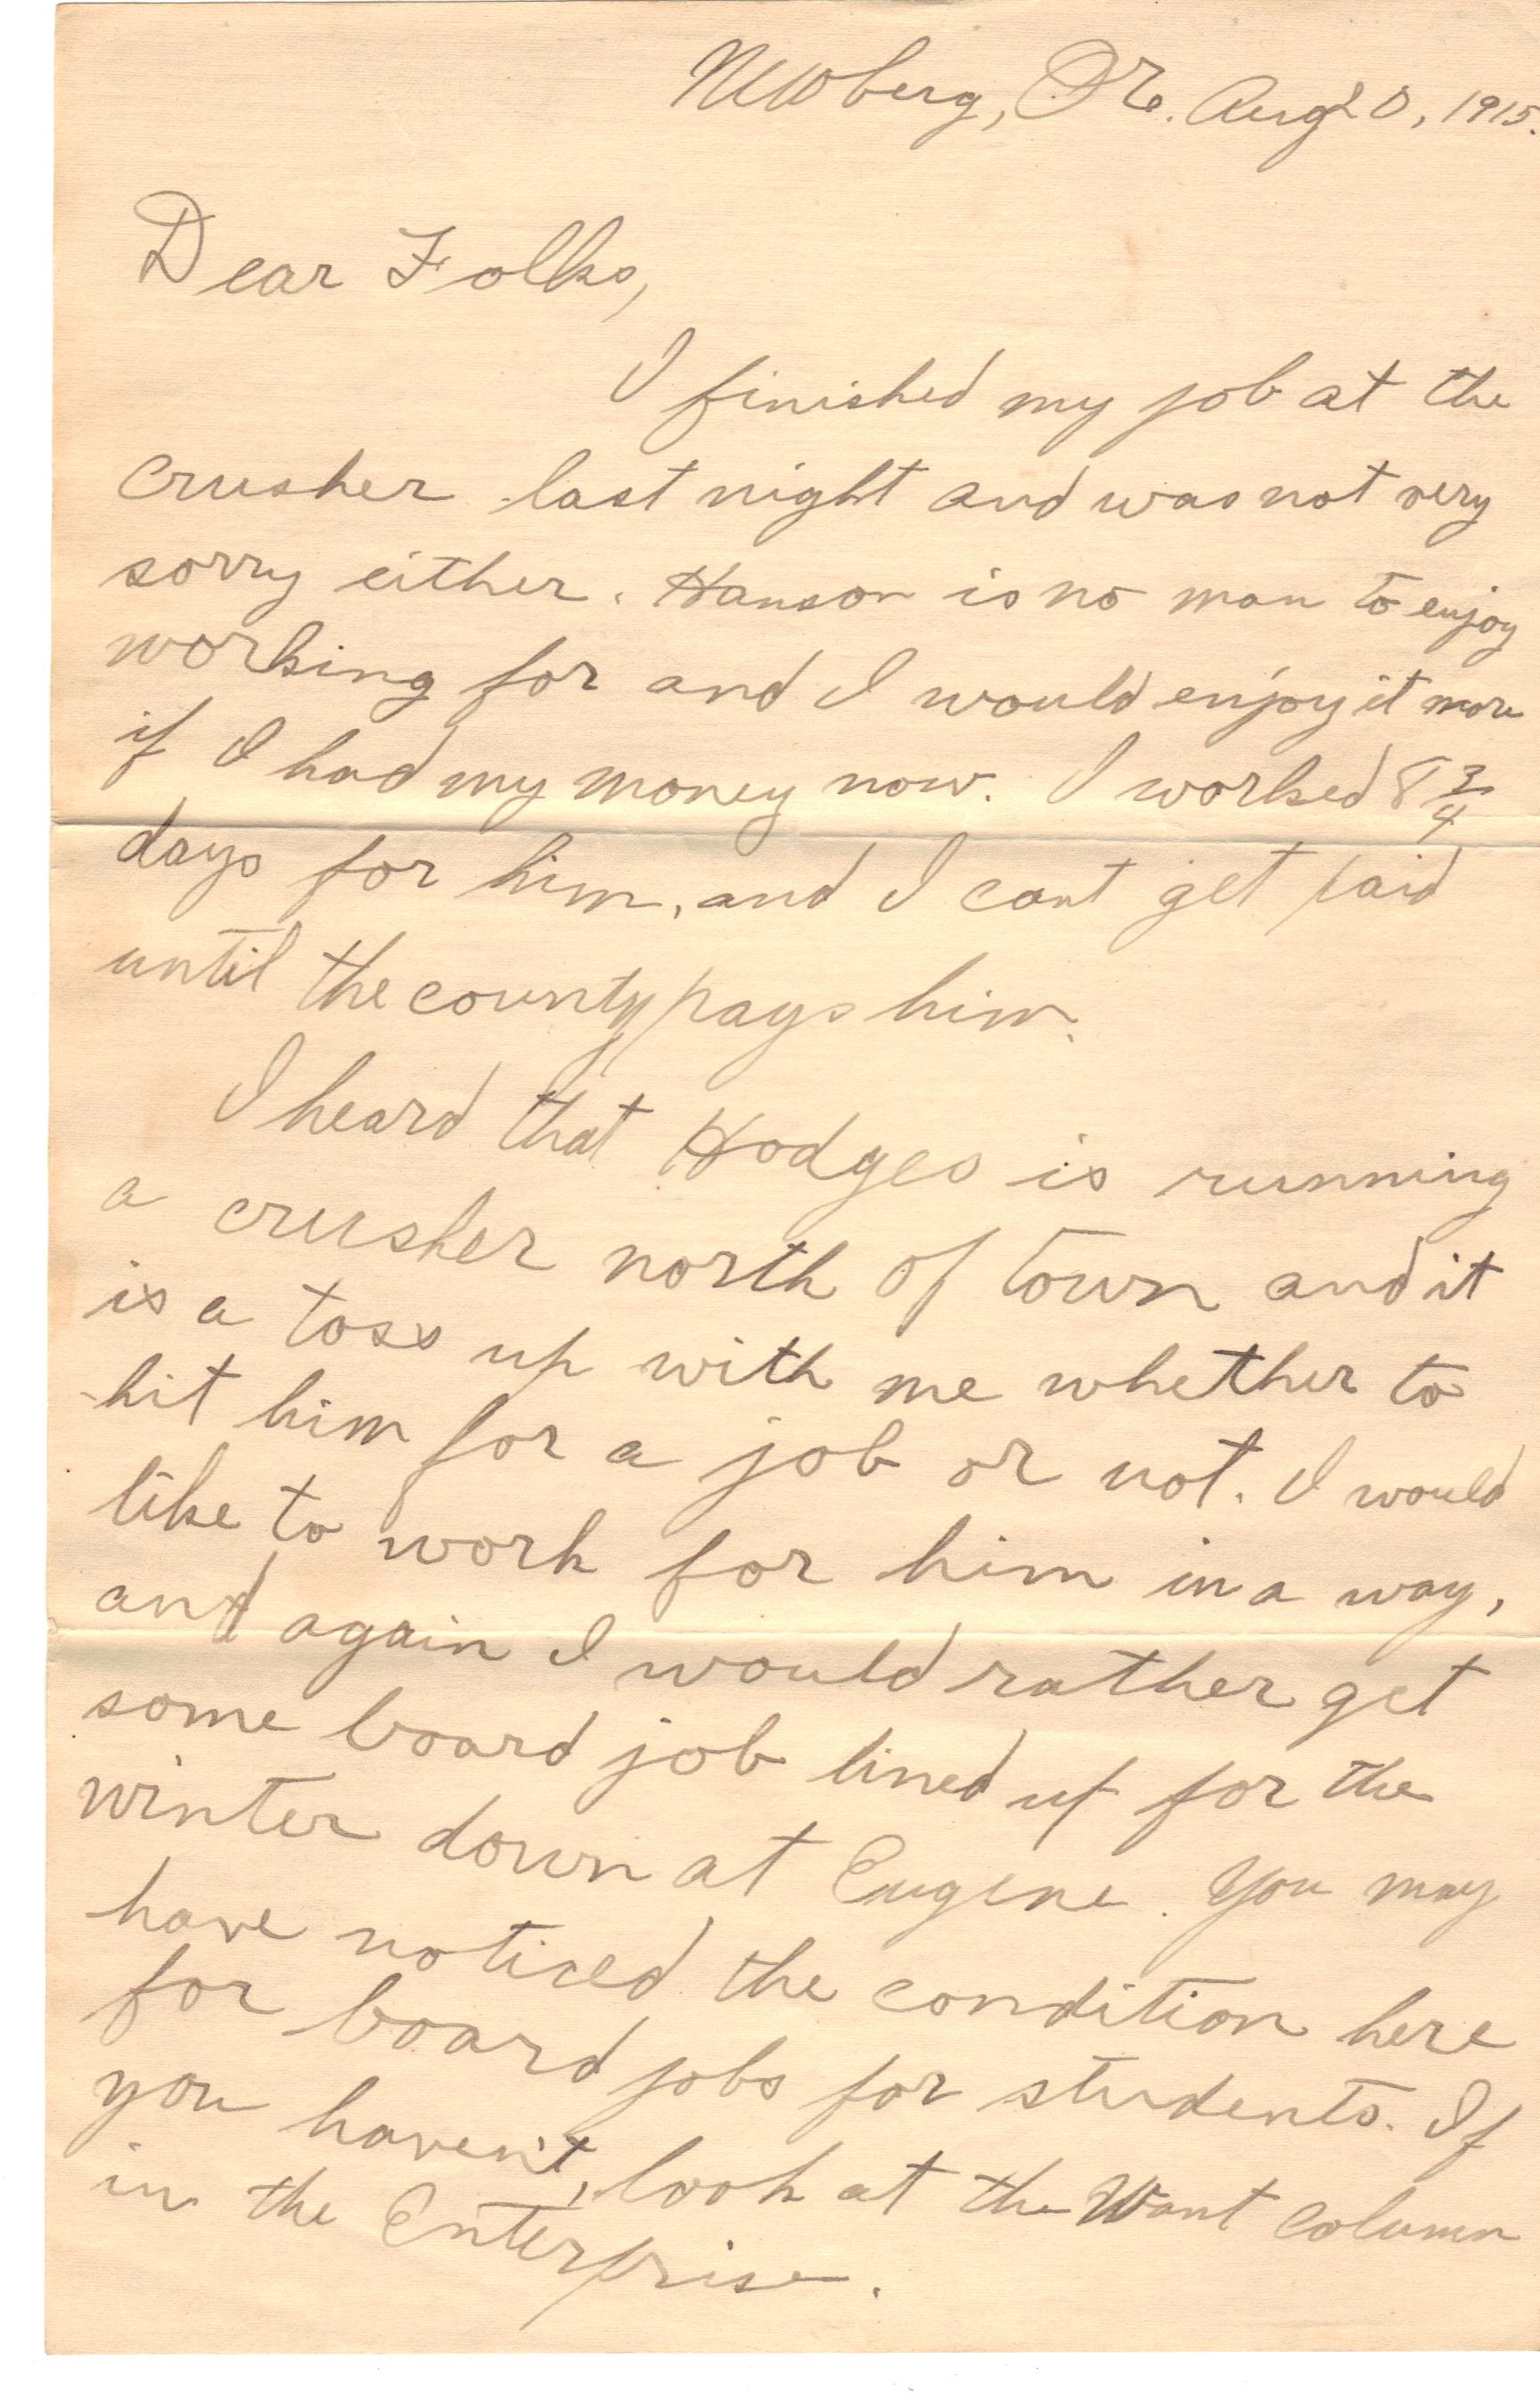 Newberg, Ore. Aug 20, 1915.
Dear Folks,
I finished my job at the
crusher last night and was not very
sorry either. Hanson is no man to enjoy
working for and I would enjoy it more
if I had my money now. I worked 8 3/4
days for him, and I cant get paid
until the county pays him.
I heard that Hodges is running
a crusher north of town and it
is a toss up with me whether to
hit him for a job or not. I would
like to work for him in a way,
and again I would rather get
some board job lined up for the
winter down at Eugene. You may
have noticed the condition here
for board jobs for students. If
you haven't, look at the Want column
in the Enterprise.